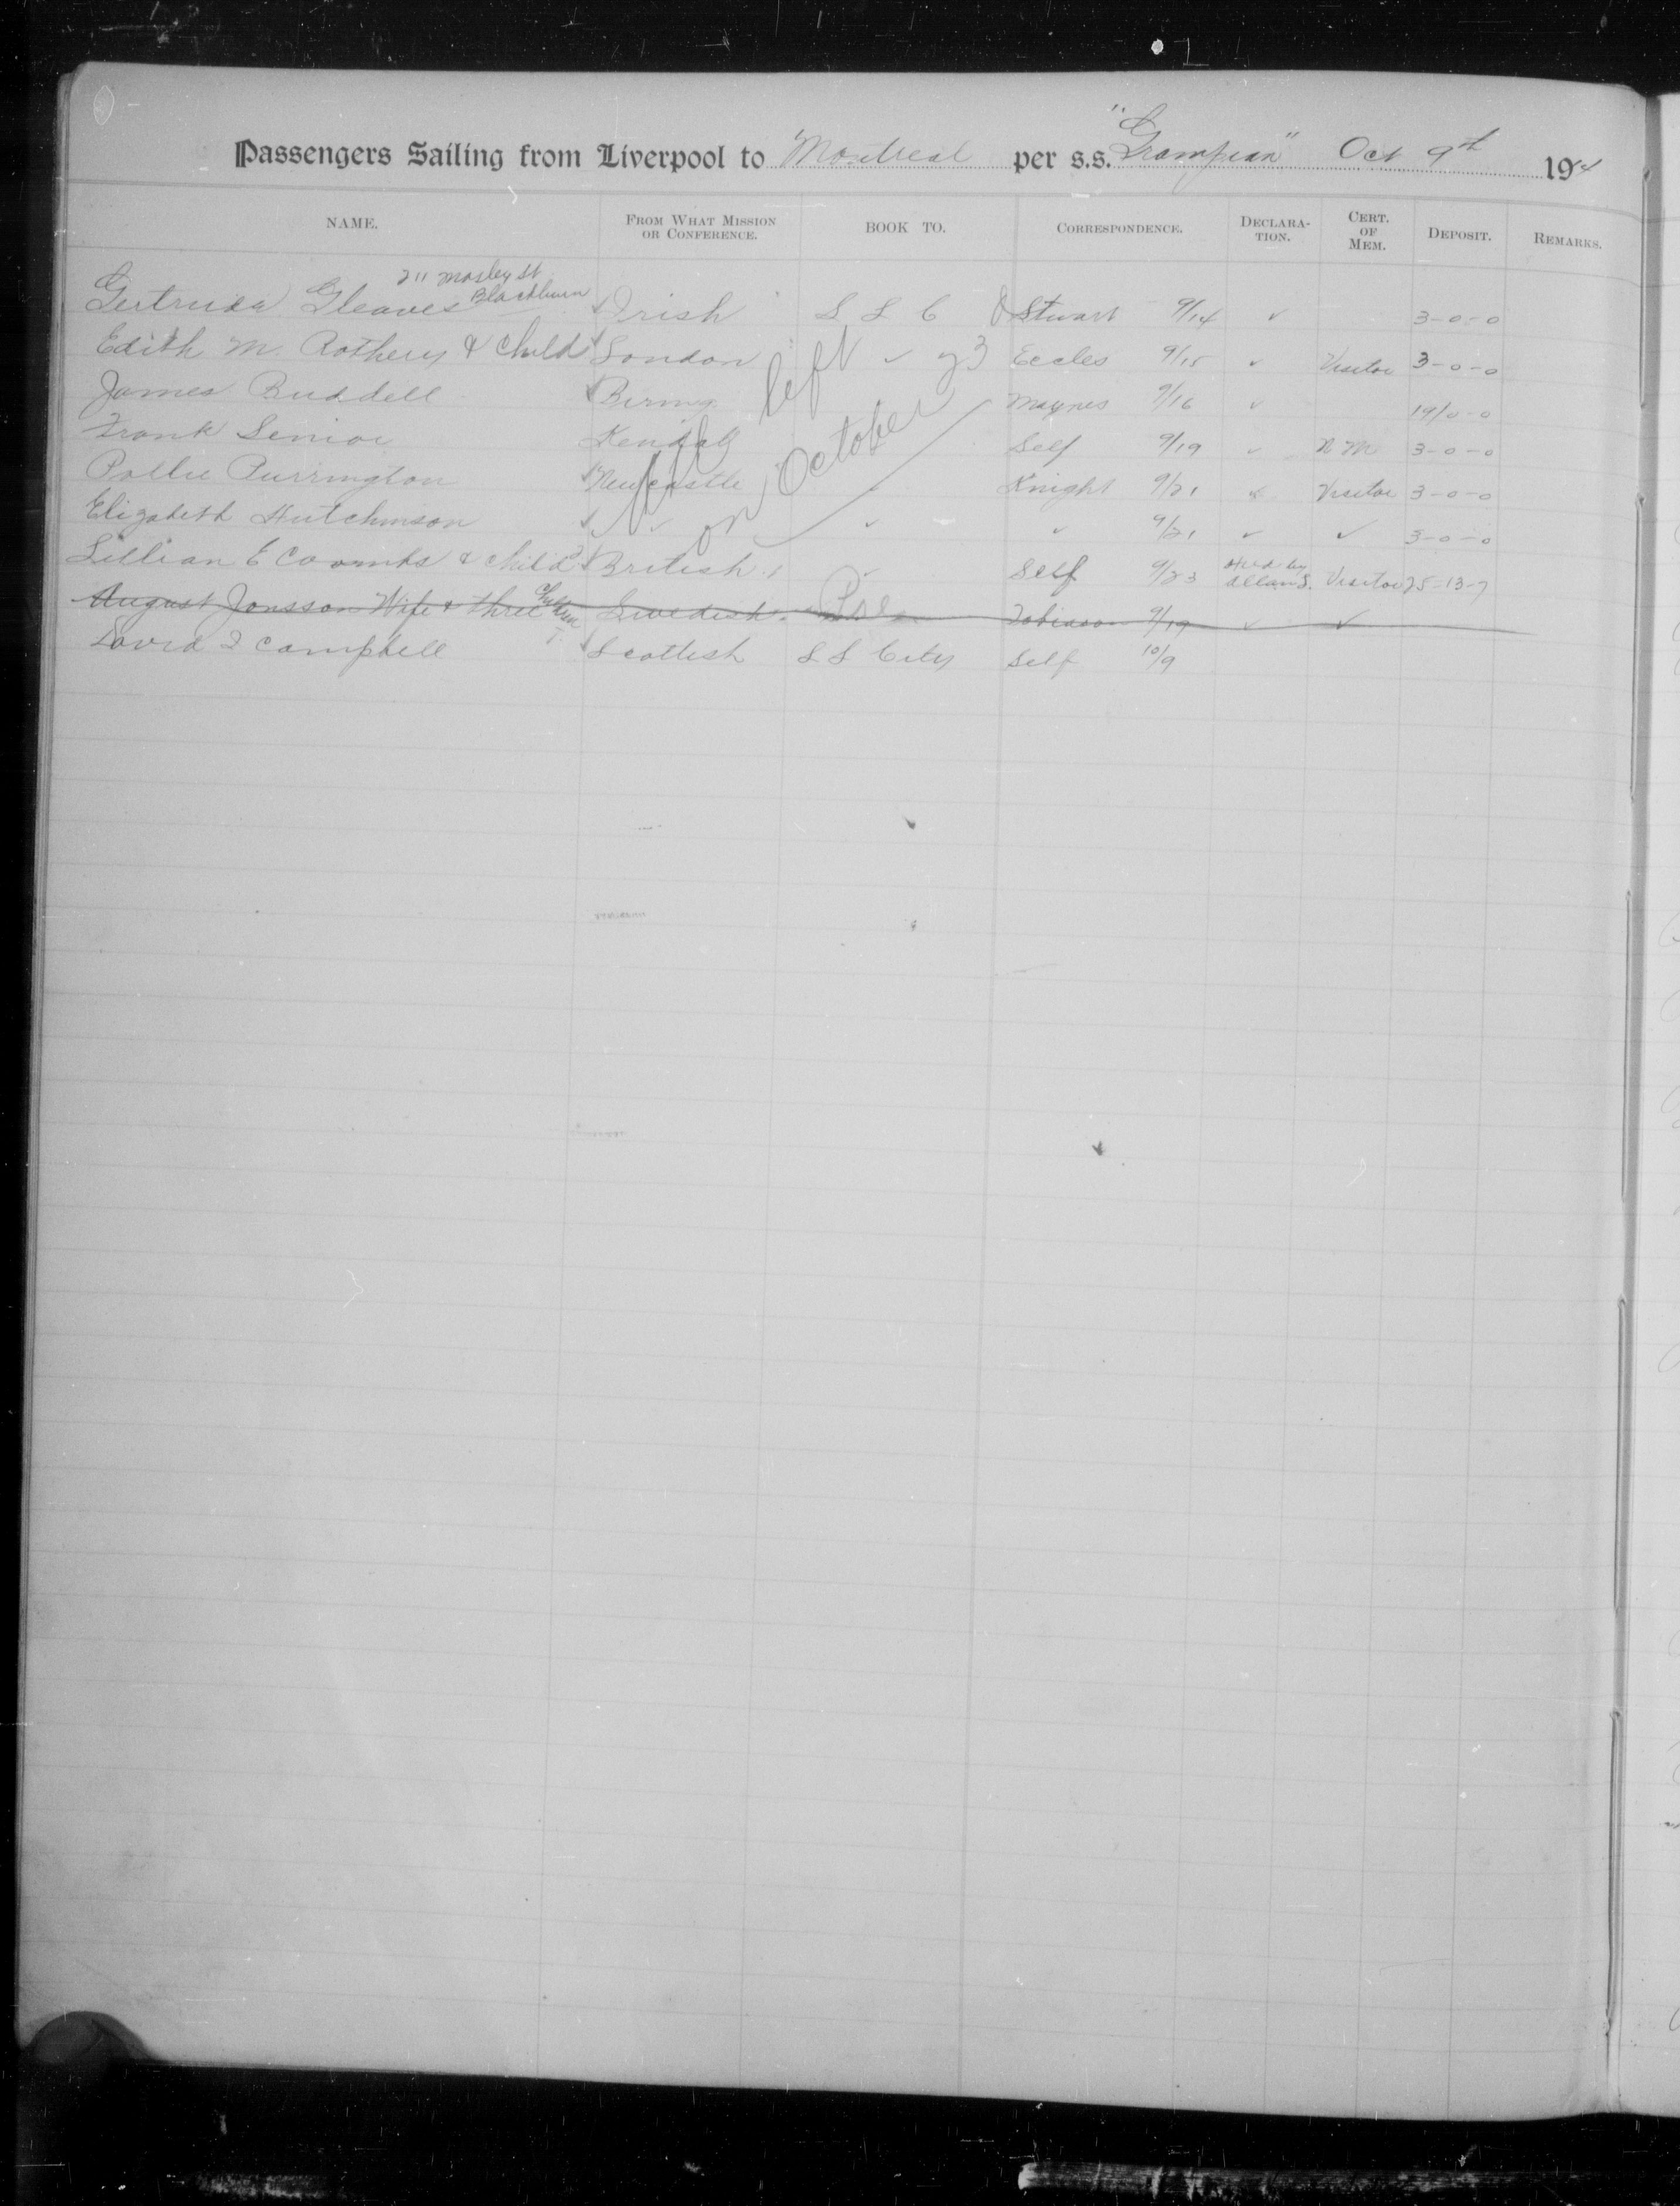 Passengers Sailing from Liverpool to Montreal per s.s. "Grampian" Oct 9th 1914
NAME. FROM WHAT MISSION OR CONFERENCE. BOOK TO. CORRESPONDENCE. DECLARA-TION. CERT. OF MEM. DEPOSIT. REMARKS.
211 Mosley St
Blackburn
Gertruda Gleaves Irish S L C Stuart 9/14 ✓ 3-0-0
Edith M. Rothery & Child London ✓ Eccles 9/15 ✓ Visitor 3-0-0
James Buddell Birmg. Maynes 9/16 ✓ 19/0-0
Frank Senior Kendall Self 9/19 ✓ N M 3-0-0
Pollie Purrington Newcastle Knight 9/21 ✓ Visitor 3-0-0
Elizabeth Hutchinson ✓ ✓ ✓ 9/21 ✓ ✓ 3-0-0
All left on October
Lillian E Coombs & Child British ✓ Self 9/23 by Allan S. Visitor 25-13-7
August Jonsson Wife & three Children Swedish Tobiason 9/19 ✓ ✓
David I Campbell Scottish S L City Self 10/9